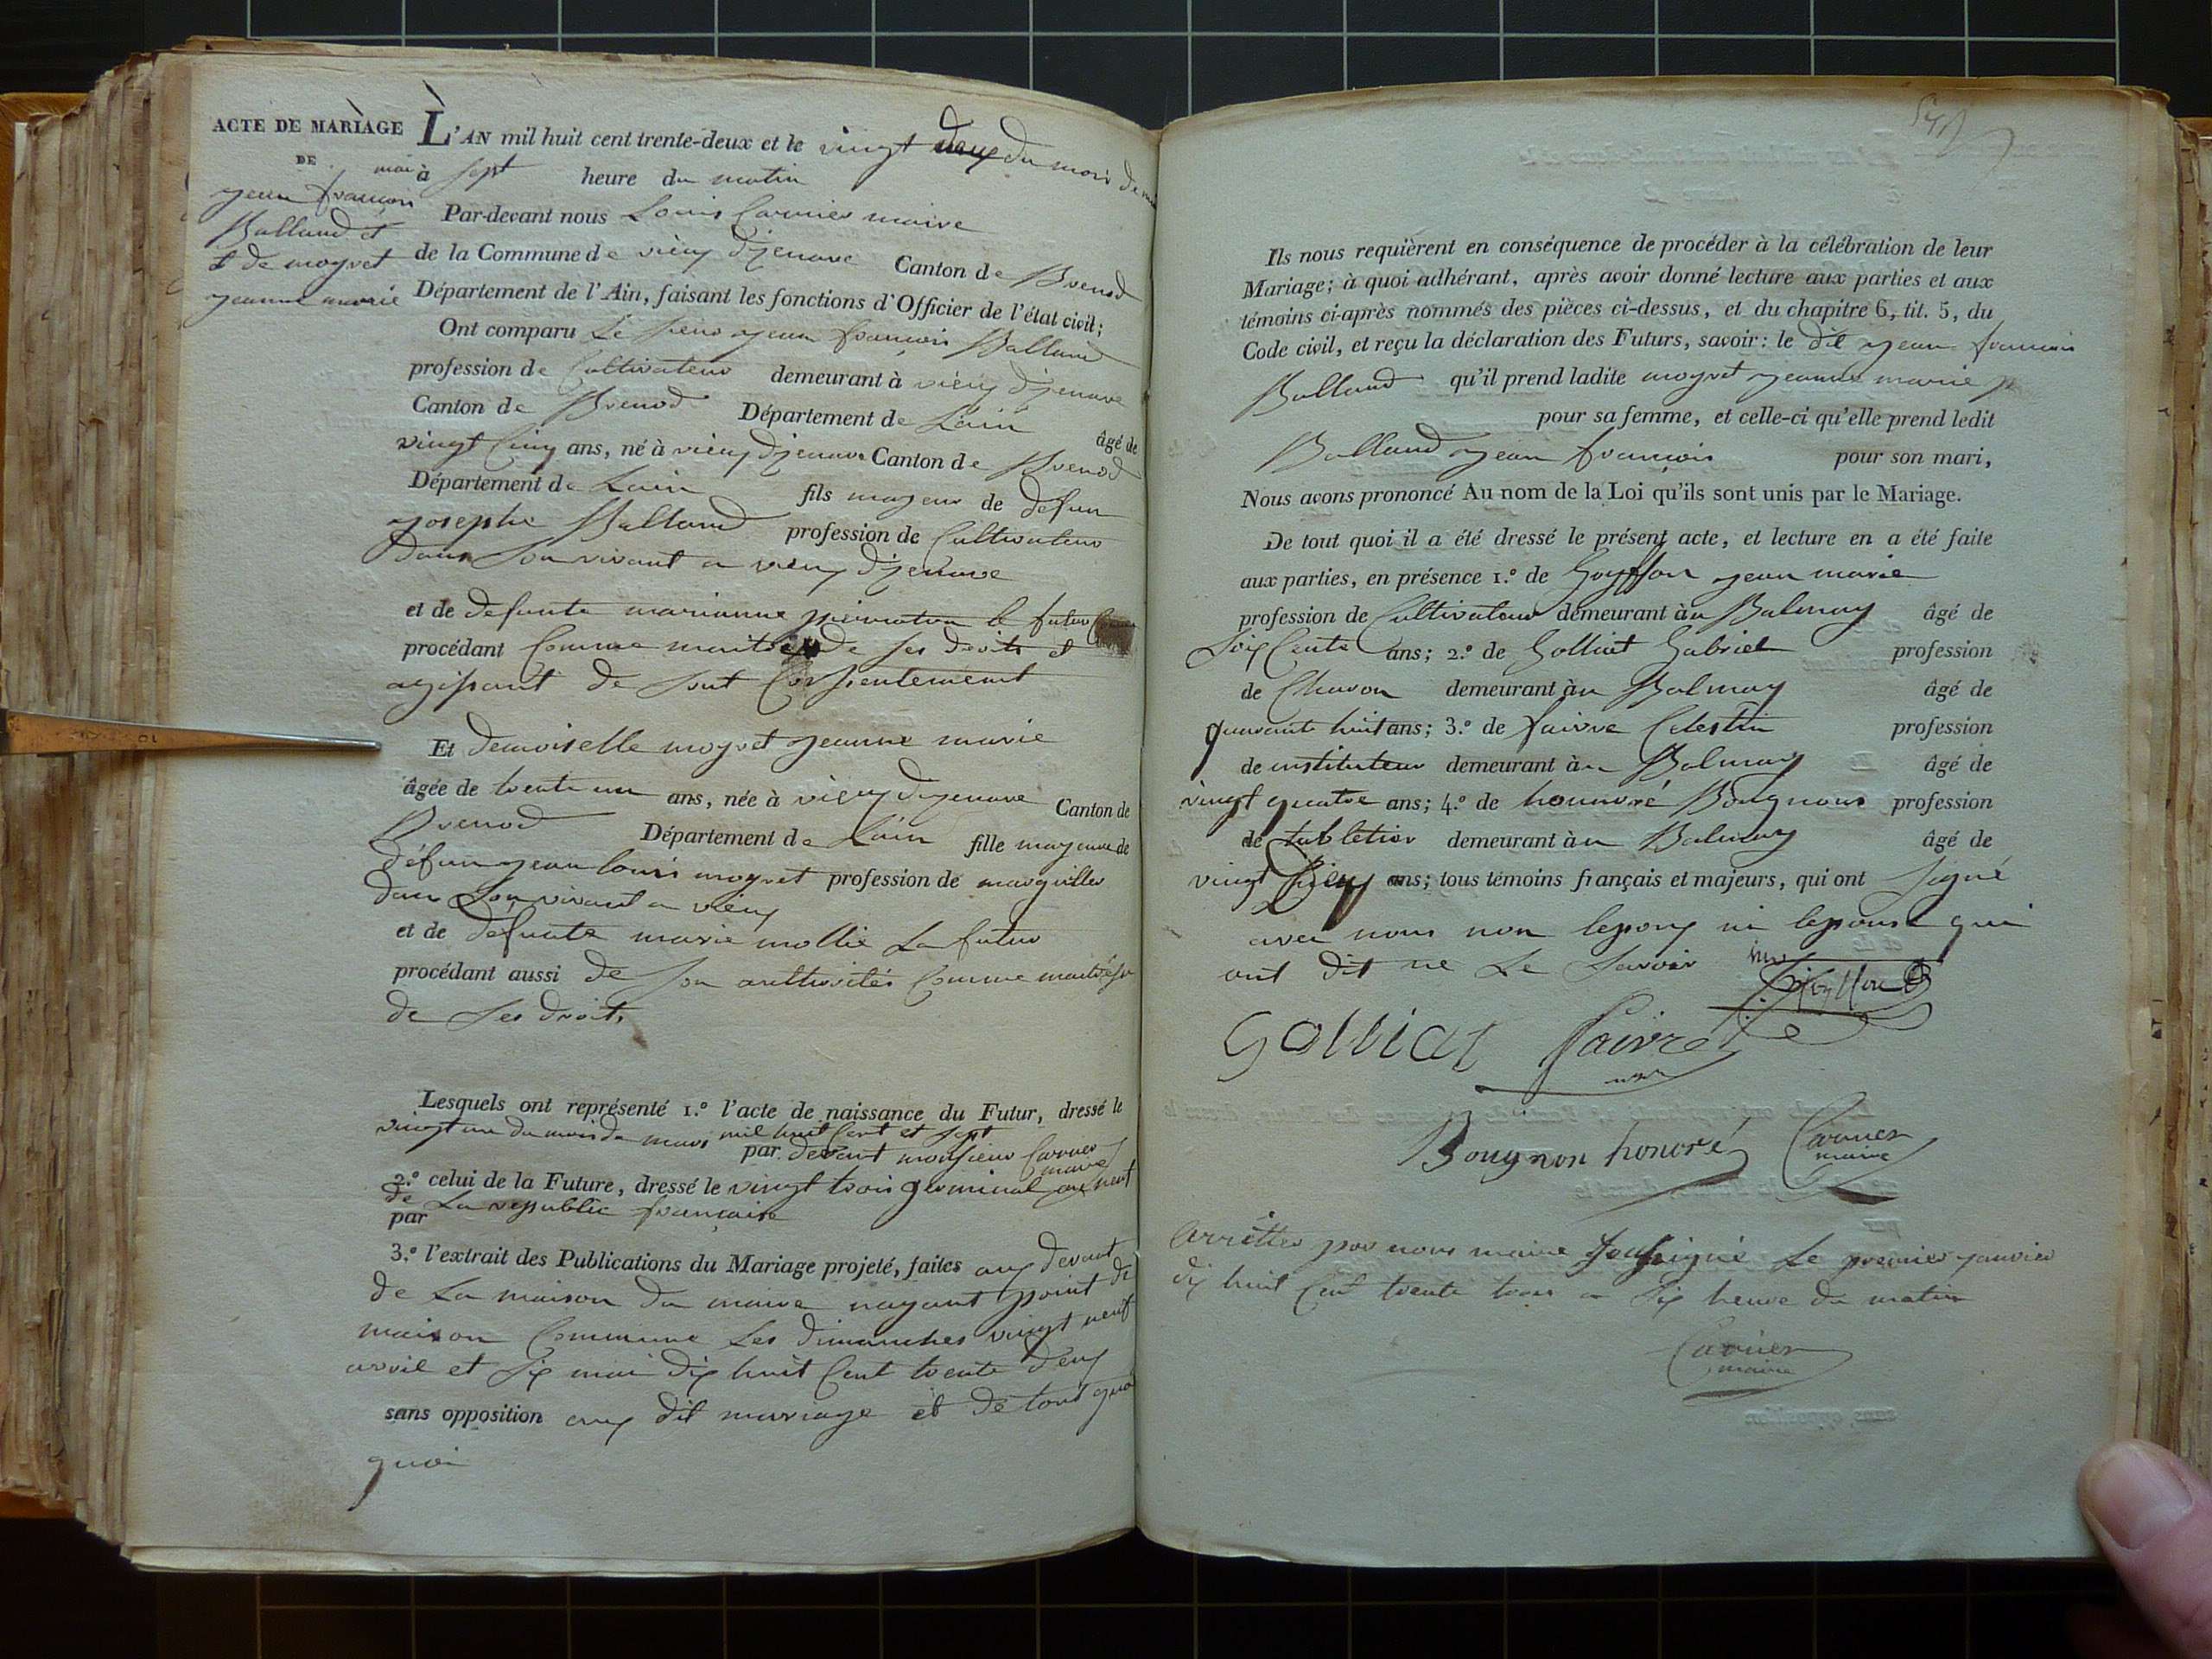 ACTE DE MARIAGE
DE
jean françois
Balland et
de moyret
jeanne marie
L'AN mil huit cent trente-deux et le vingt deux du mois de
mai à sept heure du matin
Par-devant nous Louis Carrier maire
de la Commune de vieu d'izenave Canton de Brenod
Département de l'Ain, faisant les fonctions d'Officier de l'état civil;
Ont comparu Le sieur jean françois Balland
profession de Cultivateur demeurant à vieu dizenave
Canton de Brenod Département de Lain âgé de
vingt Cinq ans, né à vieu dizenave Canton de Brenod
Département de Lain fils majeur de défun
josephe Balland profession de Cultivateur
dans son vivant a vieu d'izenave
et de defunte marianne le futur
procédant Comme maitre de ses droits et
agissant de sont Consentement
Et demoiselle moyret jeanne marie
âgée de trente un ans, née à vieu dizenave Canton de
Brenod Département de Lain fille majeure de
défun jean louis moyret profession de marguiller
dans Son vivant a vieu
et de defunte marie mollie La futur
procédant aussi de son authorités Comme maitresse
de ses droits
Lesquels ont représenté 1.º l'acte de naissance du Futur, dressé le
vingt un du mois de mars mil huit Cent et sept
par devant monsieur Carrier maire
2.º celui de la Future, dressé le vingt trois germinal an neuf
de La republic française
par
3.º l'extrait des Publications du Mariage projeté, faites aux devant
de La maison du maire nayant point de
maison Commune Les dimanches vingt neuf
avril et six mai dix huit Cent trente deux
sans opposition aux dit mariage et de tout quoi
quoi
Ils nous requièrent en conséquence de procéder à la célébration de leur
Mariage; à quoi adhérant, après avoir donné lecture aux parties et aux
témoins ci-après nommés des pièces ci-dessus, et du chapitre 6, tit. 5, du
Code civil, et reçu la déclaration des Futurs, savoir: le dit jean francois
Balland qu'il prend ladite moyret jeanne marie
pour sa femme, et celle-ci qu'elle prend ledit
Balland jean françois pour son mari,
Nous avons prononcé Au nom de la Loi qu'ils sont unis par le Mariage.
De tout quoi il a été dressé le présent acte, et lecture en a été faite
aux parties, en présence 1.º de Goyffon jean marie
profession de Cultivateur demeurant àu Balmay âgé de
Soixente ans; 2.º de Golliat Gabriel profession
de Charon demeurant àu Balmay âgé de
quarante huit ans; 3.º de faivre Celestin profession
de instituteur demeurant àu Balmay âgé de
vingt quatre ans; 4.º de honnoré Bougnon profession
de tabletier demeurant àu Balmay âgé de
vingt ans; tous témoins français et majeurs, qui ont signé
avec nous non lepoux ni lepouse qui
ont dit ne Le Savoir
Goyffon
Golliat Faivre
Bougnon honoré Carrier
maire
Arrêtter par nous maire soussigné Le premier janvier
dix huit Cent trente trois a six heure du matin
Carrier
maire